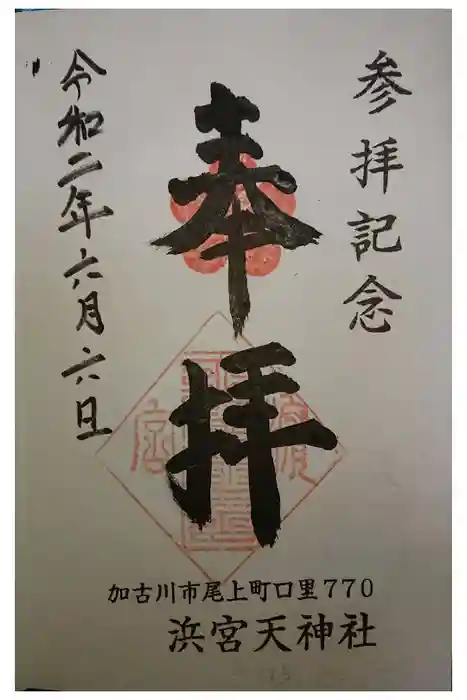 参拝記念
奉拝
令和二年六月六日
加古川市尾上町口里770
浜宮天神社